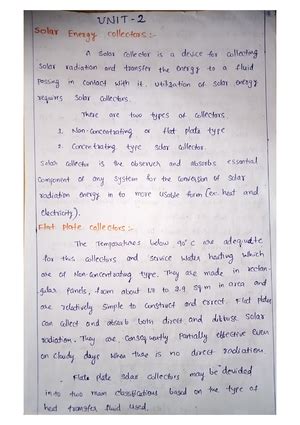 UNIT-2
Solar Energy collectors:-
A Solar collector is a device for collecting
Solar radiation and transfer the energy to a fluid
passing in contact with it. Utilization of solar energy
requires Solar collectors.
There are two types of collectors.
1. Non-concentrating or flat plate type
2. Concentrating type solar collector.
Solar collector is the observer and absorbs essential
component of any system for the conversion of solar
radiation energy in to more usable form (ex. heat and
electricity).
Flat plate collectors:-
The Temperatures below 90°C are adequate
for this collectors and service water heating which
are of Non-concentrating type. They are made in rectan-
gular panels, from about 1.7 to 2.9 sq.m in area and
are relatively simple to construct and errect. Flat plates
can collect and absorb both direct and diffuse solar
radiation. They are consequently partially effective even
on cloudy days when there is no direct radiation.
Flate plate solar collectors may be devided
in to two main classifications based on the type of
heat transfer fluid used.